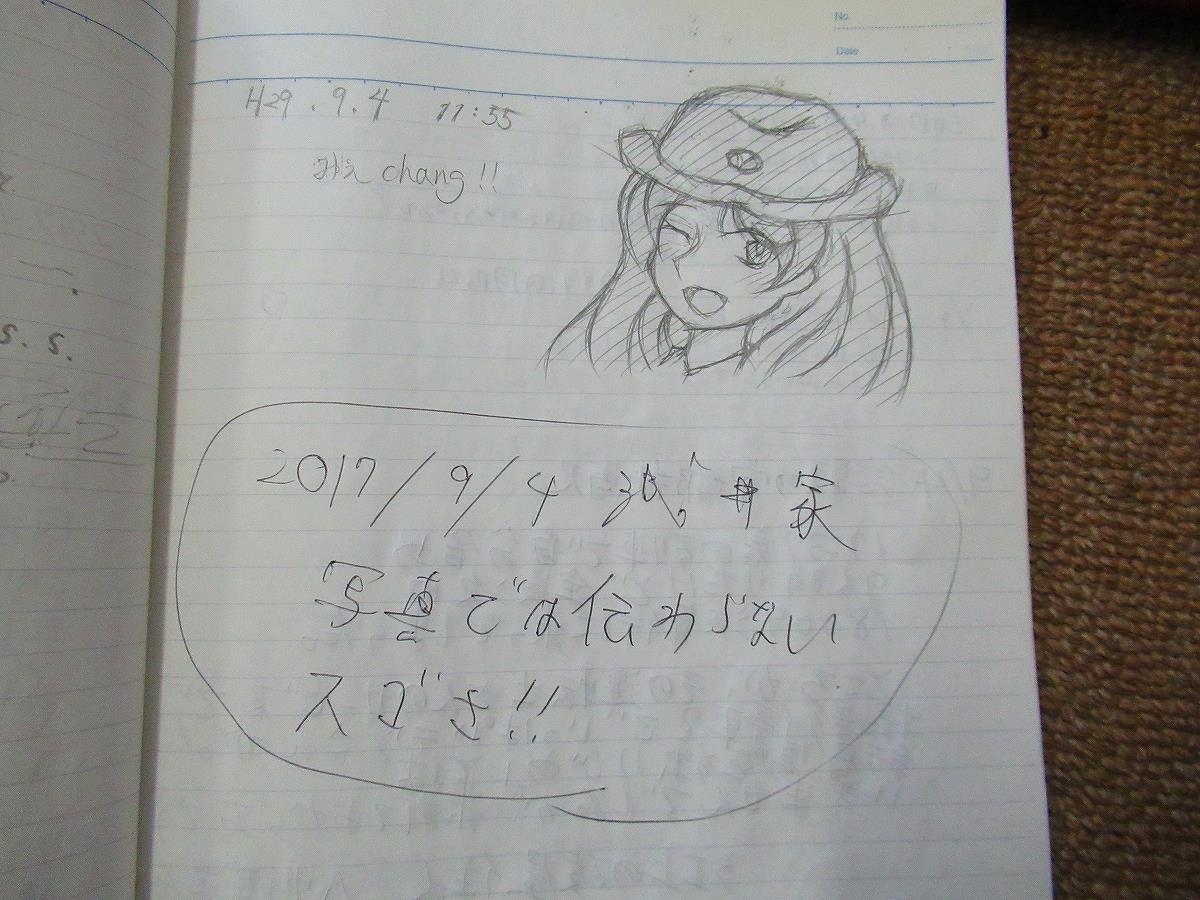 No.
Date
H29.9.4 11:55
みえchang!!
2017/9/4 武井家
写真では伝わらない
スゴさ!!
s. s.